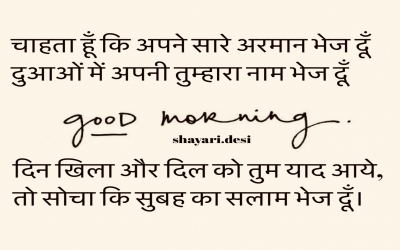 चाहता हूँ कि अपने सारे अरमान भेज दूँ
दुआओं में अपनी तुम्हारा नाम भेज दूँ
good morning.
shayari.desi
दिन खिला और दिल को तुम याद आये,
तो सोचा कि सुबह का सलाम भेज दूँ।